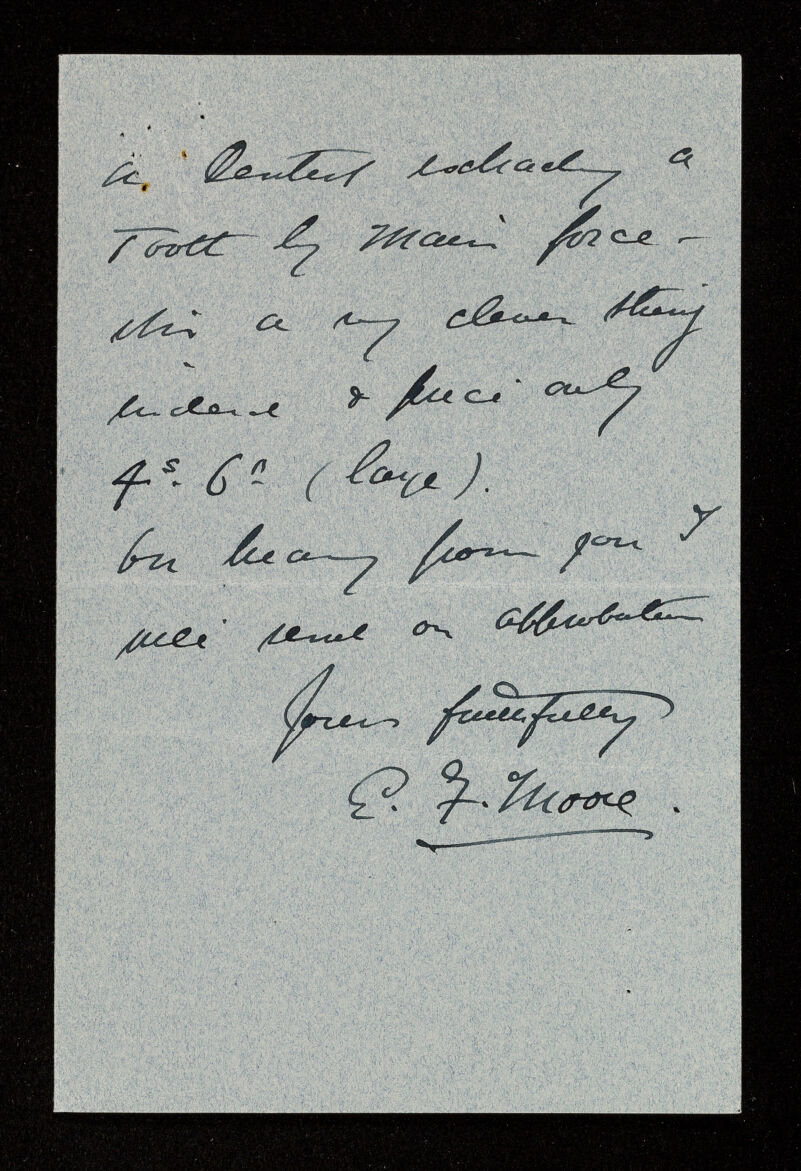 a Dentist extracting a
Tooth by Main force -
this a very clever thing
indeed & price only
4s. 6d (large).
On hearing from you I
will send on approbation
Yours faithfully
E. F. Moore.